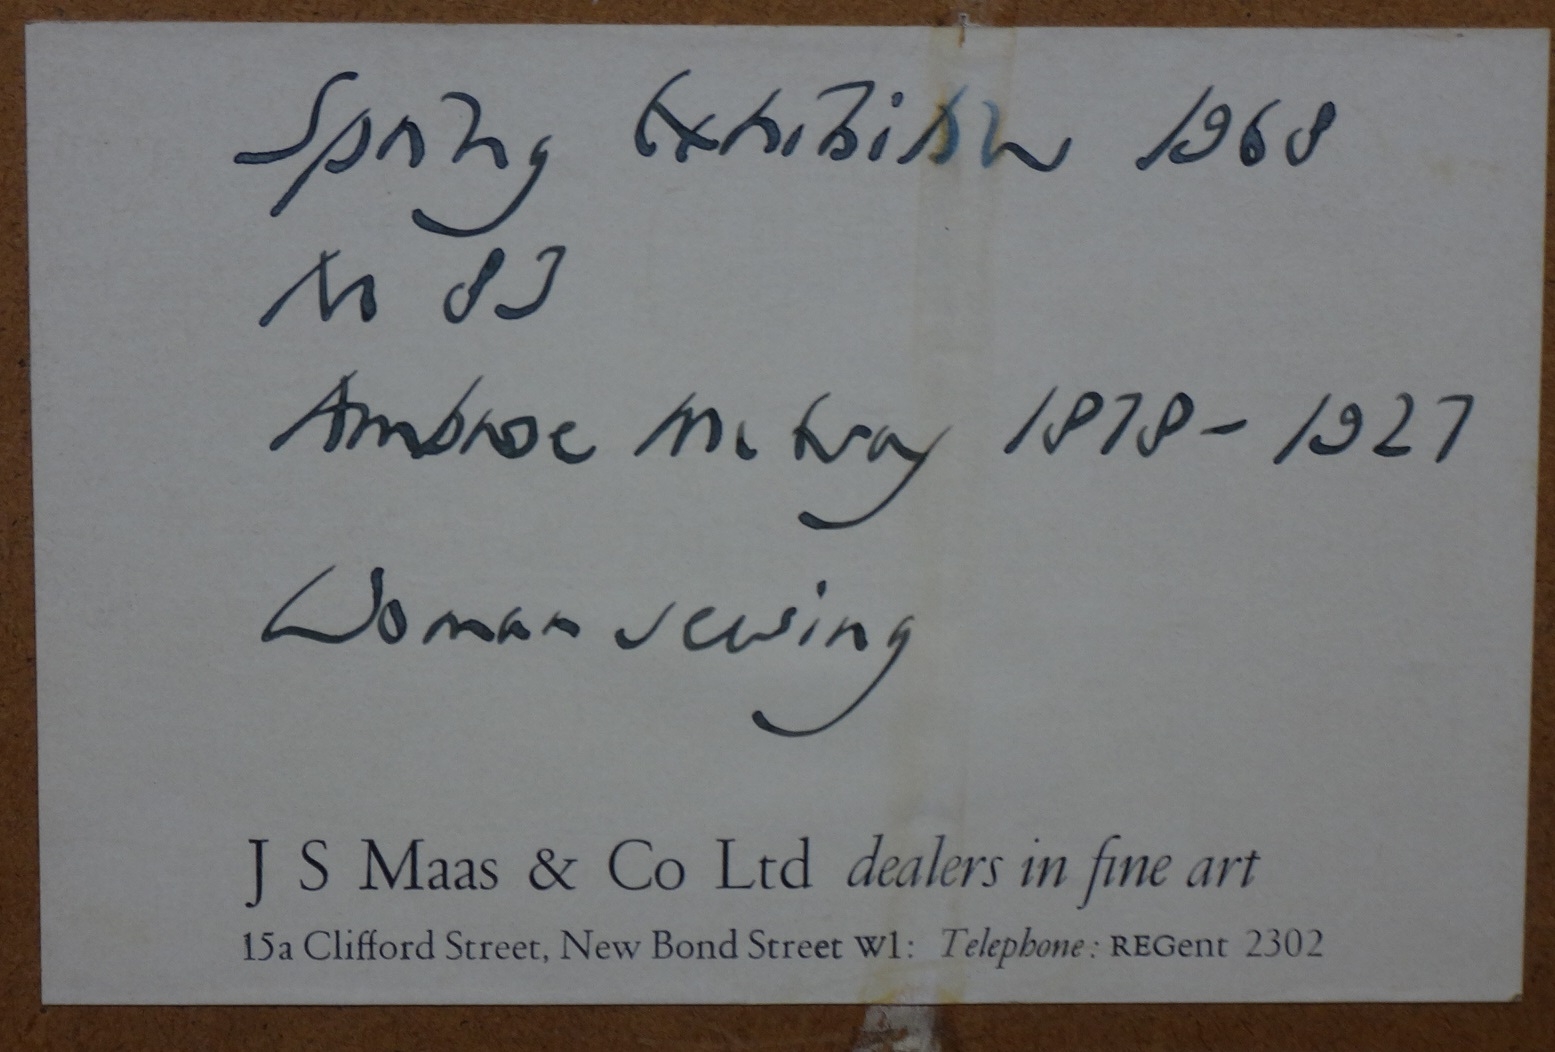 Spring Exhibition 1968
No 83
Ambrose McEvoy 1878-1927
Woman sewing
J S Maas & Co Ltd dealers in fine art
15a Clifford Street, New Bond Street W1: Telephone: REGent 2302